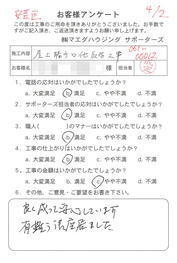 お客様アンケート
4/2
この度は工事のご用命を頂きありがとうございました。お手数で
すがご記入頂き、ご返送頂きますようお願い申し上げます。
㈱マエダハウジング サポーターズ
施工内容
お名前
様
担当
1. 電話の応対はいかがでしたでしょうか?
a. 大変満足 b. 満足 c. やや不満 d. 不満
2. サポーターズ担当者の応対はいかがでしたでしょうか?
a. 大変満足 b. 満足 c. やや不満 d. 不満
3. 職人( )のマナーはいかがでしたでしょうか?
a. 大変満足 b. 満足 c. やや不満 d. 不満
4. 工事の仕上がりはいかがでしたでしょうか?
a. 大変満足 b. 満足 c. やや不満 d. 不満
5. 工事の金額はいかがでしたでしょうか?
a. 大変満足 b. 満足 c. やや不満 d. 不満
6. その他、ご意見・ご要望をお書き下さい。
良く成って安心しています
有難う御座居ました